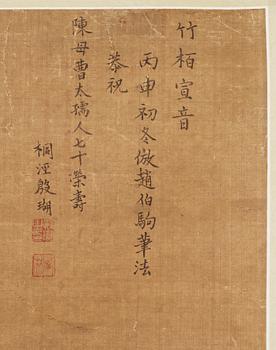 竹栢宣音
丙申初冬倣趙伯駒筆法
恭祝
陳母曹太孺人七十榮壽
桐涇殷瑚